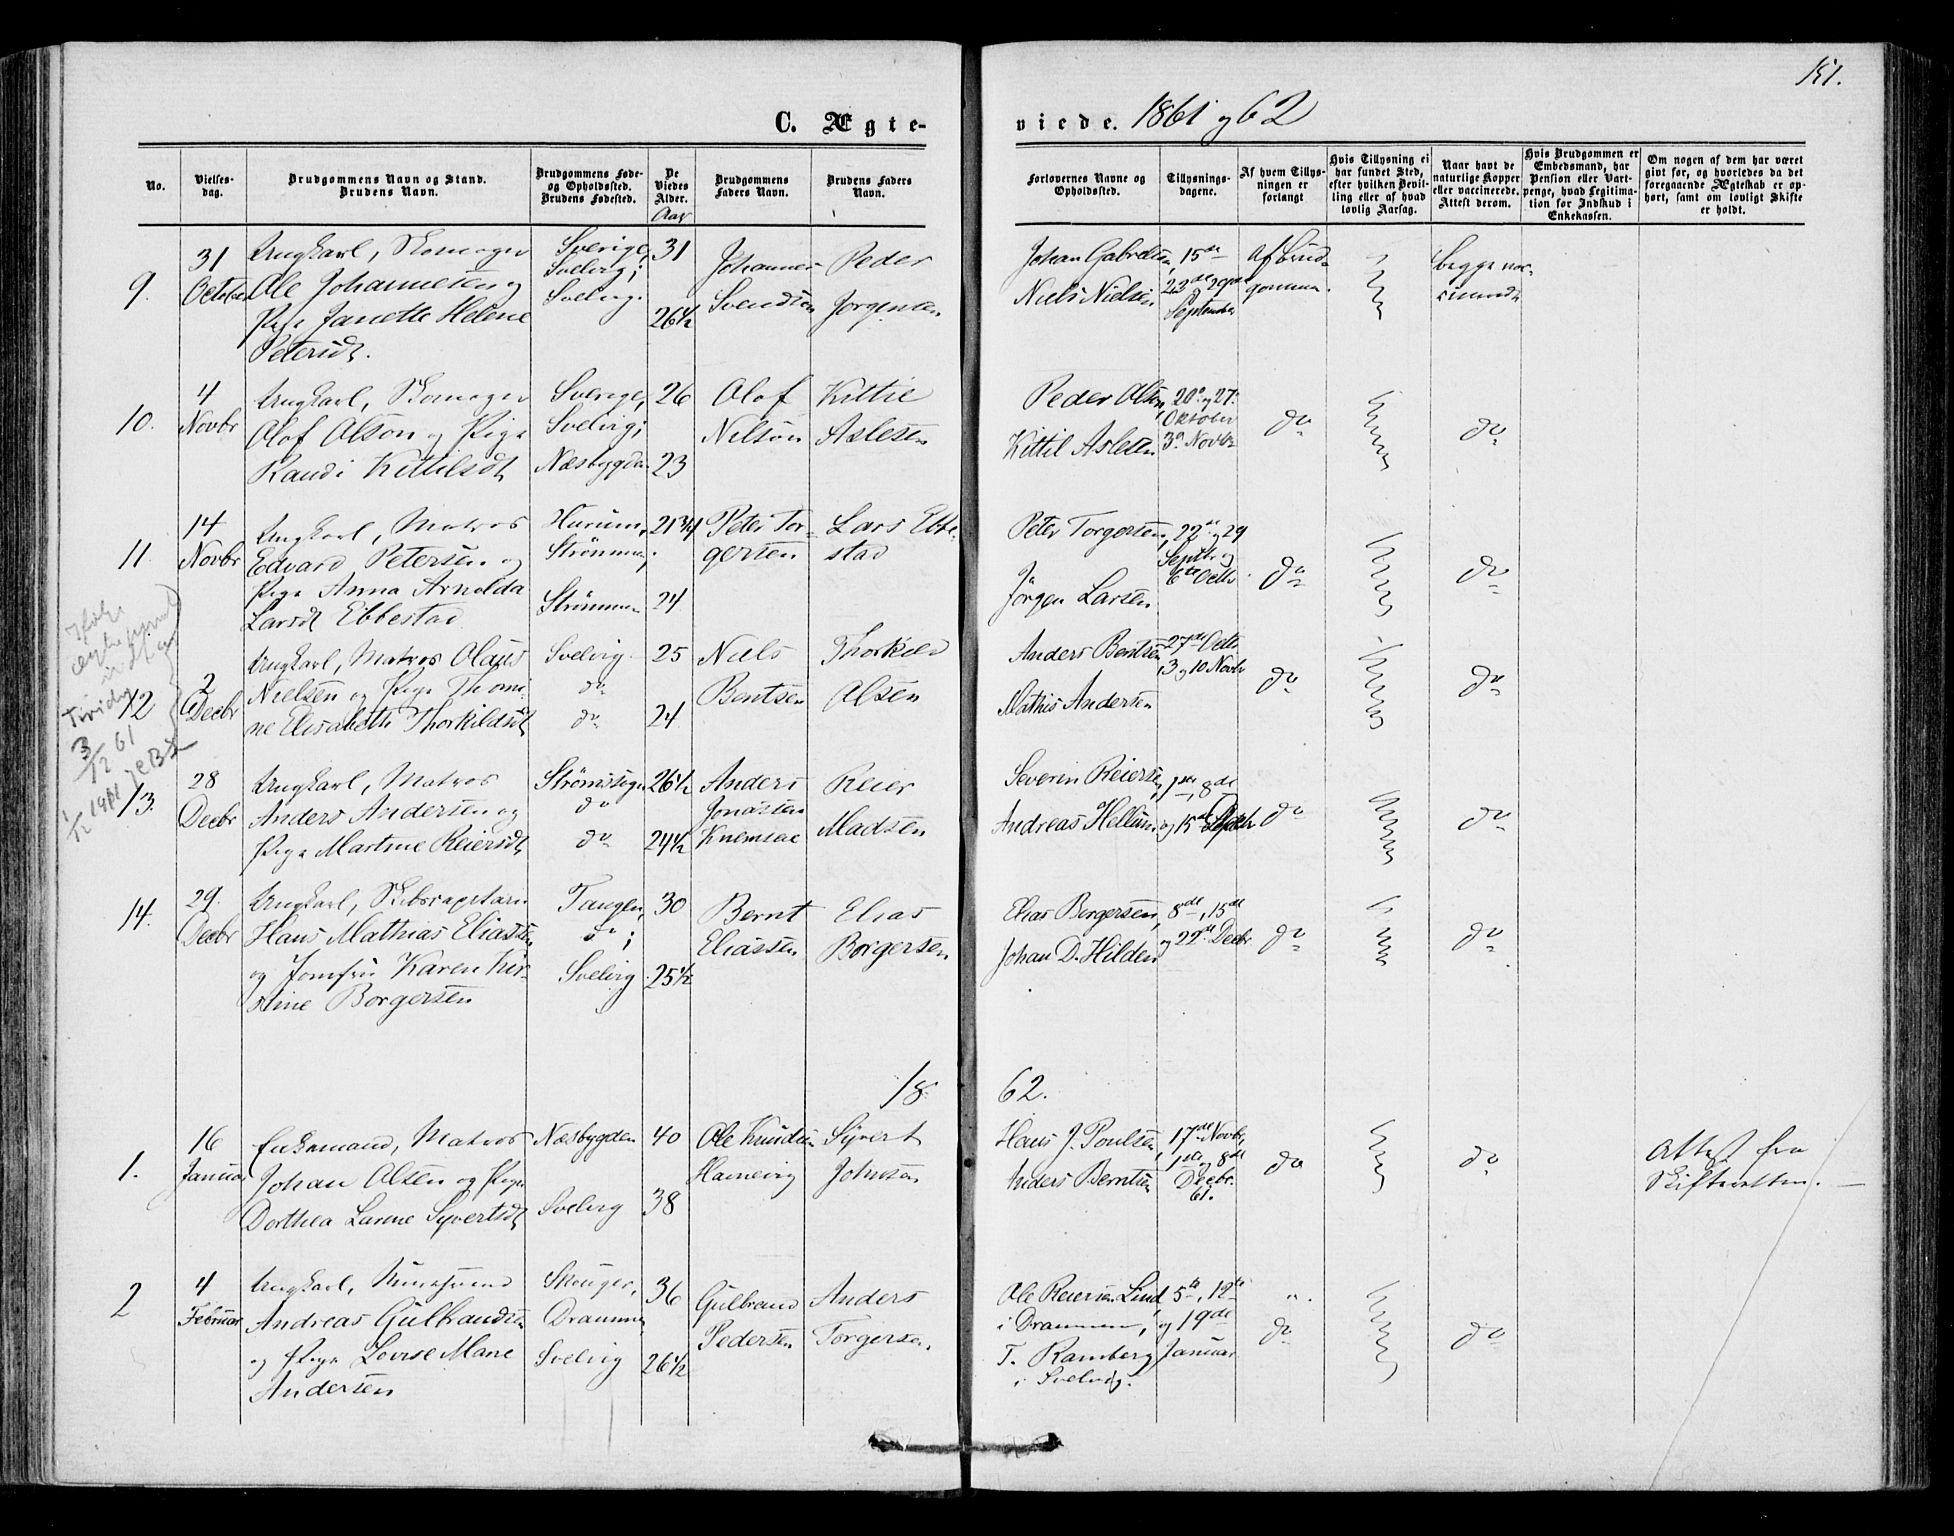 151.
C. Ægte-
viede. 1861 og 62
No.
Vielses-
dag.
Brudgommens Navn og Stand.
Brudens Navn.
Brudgommens Føde-
og Opholdssted.
Brudens Fødested.
De
Viedes
Alder.
Aar
Brudgommens
Faders Navn.
Brudens Faders
Navn.
Forlovernes Navne og
Opholdssted.
Tillysnings-
dagene.
Af hvem Tillys-
ningen er
forlangt
Hvis Tillysning ei
har fundet Sted,
efter hvilken Bevil-
ling eller af hvad
lovlig Aarsag.
Naar havt de
naturlige Kopper
eller vaccinerede.
Attest derom.
Hvis Brudgommen er
Embedsmand, har
Pension eller Vart-
penge, hvad Legitima-
tion for Indskud i
Enkekassen.
Om nogen af dem har været
givt før, og hvorledes da det
foregaaende Ægteskab er op-
hørt, samt om lovligt Skifte
er holdt.
9.
31
October
Ungkarl, Skomager
Ole Johannesen og
Pige Janette Helene
Petersdt.
Sverige,
Svelvig;
Svelvig.
31
26½
Johannes
Svendsen
Peder
Jørgensen
Johan Gabrielsen,
Niels Nielsen
15de
22de 29de
September
af Brud-
gommen.
begge vac-
cinerede
10.
4
Novbr
Ungkarl, Skomager
Olof Olson og Pige
Randi Kittilsdt
Sverige,
Svelvig;
Næsbygden
26
23
Olof
Nilson
Kittil
Aslesen
Peder Olsen,
Kittil Aslesen
20de og 27de
Oktober
3de Novbr
do
do
11.
14
Novbr
Ungkarl, Matros
Edvard Petersen og
Pige Anna Arnolda
Larsdt Ebbestad
Hurum,
Strømmen;
Strømmen
21¾
24
Peter Tor-
gersen
Lars Ebbe-
stad
Peter Torgersen,
Jørgen Larsen
22de og 29
Septbr og
6te Octbr.
do
do
12
2
Decbr
Ungkarl, Matros Olaus
Nielsen og Pige Thomi-
ne Elisabeth Thorkildsdt
Svelvig
do
do
25
24
Niels
Bentsen
Thorkild
Olsen
Anders Bentsen,
Mathis Andersen
27de Octbr
3 og 10 Novbr
do
do
3/12 61
1/12 1961
13.
28
Decbr
Ungkarl, Matros
Anders Andersen og
Pige Martine Reiersdt
Strømsogn
do
do
26½
24½
Anders
Jonassen
Reier
Madsen
Severin Reiersen,
Andreas Hellum
1ste, 8de
og 15de
do
do
14.
29.
Decbr
Ungkarl, Skibscaptain
Hans Mathias Eliassen
og Jomfru Karen Kir-
stine Borgersen
Tangen,
do;
Svelvig
30
25½
Bernt
Eliassen
Elias
Borgersen
Elias Borgersen,
Johan D. Hilden
8de, 15de
og 22de Decbr
do
do
18
62.
1.
16
Januar
Enkemand, Matros
Johan Olsen og Pige
Dorthea Larine Syvertsdt
Næsbygden
Svelvig
40
38
Ole Knudsen
Syvert
Johnsen
Hans J. Poulsen,
Anders Berntsen
17de Novbr,
1ste og 8de
Decbr.
61.
do
do
Attest fra
Skifteretten.
2
4
Februar
Ungkarl,
Andreas Gulbrandsen
og Pige Lovise Marie
Andersen
Skouger,
Drammen
Svelvig
36
26½
Gulbrand
Pedersen
Anders
Torgersen.
Ole Reiersen Lind
i Drammen,
T. Ramberg
i Svelvig.
5te, 12te
og 19de
Januar
do
do